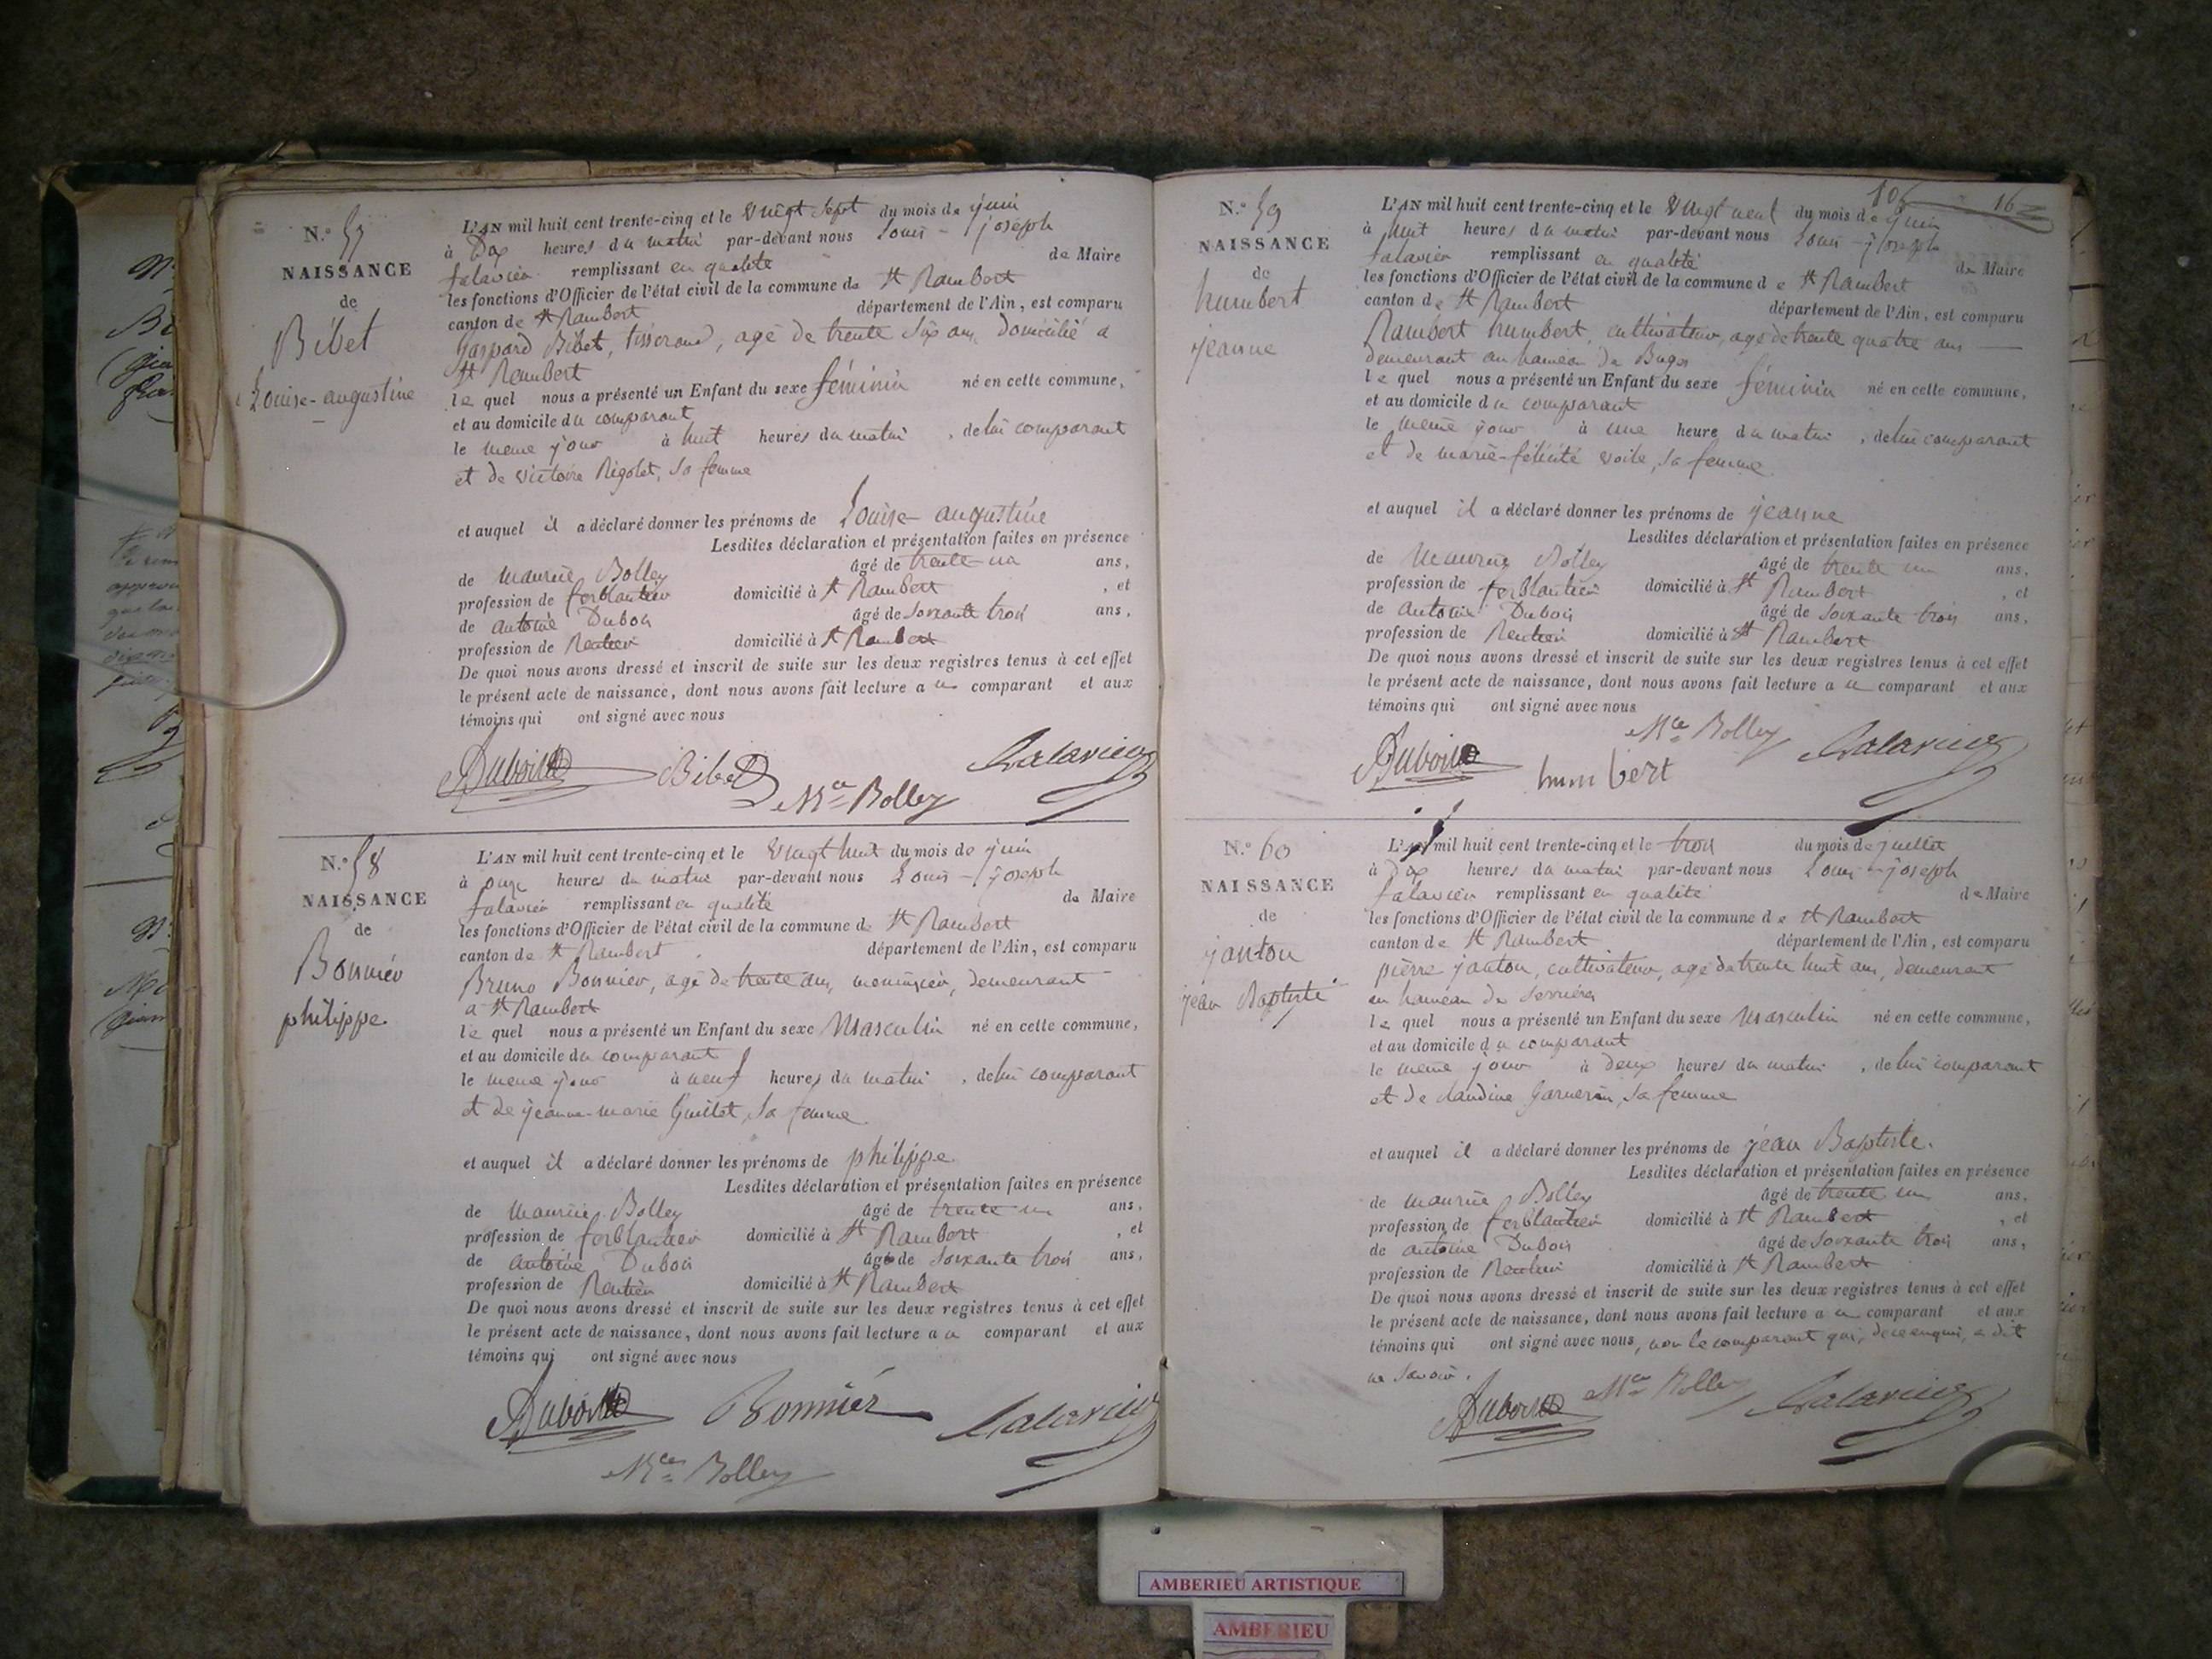 N.° 57
NAISSANCE
de
Bibet
Louise-augustine
L'AN mil huit cent trente-cinq et le vingt sept du mois de juin
à Dix heures du matin par-devant nous Louis-joseph
falavier remplissant en qualité de Maire
les fonctions d'Officier de l'état civil de la commune de St Rambert
canton de St Rambert département de l'Ain, est comparu
Gaspard Bibet, tisserand, agé de trente six ans, domicilié a
St Rambert
le quel nous a présenté un Enfant du sexe féminin né en cette commune,
et au domicile du comparant
le meme jour à huit heures du matin, de lui comparant
et de victoire Rigolet, sa femme
et auquel il a déclaré donner les prénoms de Louise-augustine
Lesdites déclaration et présentation faites en présence
de maurice Bolley âgé de trente-un ans,
profession de ferblantier domicilié à St Rambert, et
de antoine Dubois âgé de soixante trois ans,
profession de Rentier domicilié à St Rambert
De quoi nous avons dressé et inscrit de suite sur les deux registres tenus à cet effet
le présent acte de naissance, dont nous avons fait lecture au comparant et aux
témoins qui ont signé avec nous
Dubois Bibet falavier
Mce Bolley
N.° 58
NAISSANCE
de
Bonnier
philippe
L'AN mil huit cent trente-cinq et le vingt huit du mois de juin
à onze heures du matin par-devant nous Louis-joseph
falavier remplissant en qualité de Maire
les fonctions d'Officier de l'état civil de la commune de St Rambert
canton de St Rambert département de l'Ain, est comparu
Bruno Bonnier, agé de trente ans, menuisier, demeurant
a St Rambert
le quel nous a présenté un Enfant du sexe Masculin né en cette commune,
et au domicile du comparant
le meme jour à neuf heures du matin, de lui comparant
et de jeanne-marie Guillot, sa femme
et auquel il a déclaré donner les prénoms de philippe
Lesdites déclaration et présentation faites en présence
de maurice Bolley âgé de trente un ans,
profession de ferblantier domicilié à St Rambert, et
de antoine Dubois âgé de soixante trois ans,
profession de Rentier domicilié à St Rambert
De quoi nous avons dressé et inscrit de suite sur les deux registres tenus à cet effet
le présent acte de naissance, dont nous avons fait lecture au comparant et aux
témoins qui ont signé avec nous
Dubois Bonnier falavier
Mce Bolley
N.° 59
NAISSANCE
de
humbert
jeanne
L'AN mil huit cent trente-cinq et le vingt neuf du mois de juin
à huit heures du matin par-devant nous Louis-joseph
falavier remplissant en qualité de Maire
les fonctions d'Officier de l'état civil de la commune de St Rambert
canton de St Rambert département de l'Ain, est comparu
Rambert humbert, cultivateur, agé de trente quatre ans
demeurant au hameau de Buges
le quel nous a présenté un Enfant du sexe féminin né en cette commune,
et au domicile du comparant
le meme jour à une heure du matin, de lui comparant
et de marie-félicité voile, sa femme
et auquel il a déclaré donner les prénoms de jeanne
Lesdites déclaration et présentation faites en présence
de Maurice Bolley âgé de trente un ans,
profession de ferblantier domicilié à St Rambert, et
de antoine Dubois âgé de soixante trois ans,
profession de Rentier domicilié à St Rambert
De quoi nous avons dressé et inscrit de suite sur les deux registres tenus à cet effet
le présent acte de naissance, dont nous avons fait lecture au comparant et aux
témoins qui ont signé avec nous
Mce Bolley
Dubois humbert falavier
N.° 60
NAISSANCE
de
janton
jean Baptiste
L'AN mil huit cent trente-cinq et le trois du mois de juillet
à Dix heures du matin par-devant nous Louis-joseph
falavier remplissant en qualité de Maire
les fonctions d'Officier de l'état civil de la commune de St Rambert
canton de St Rambert département de l'Ain, est comparu
pierre janton, cultivateur, agé de trente huit ans, demeurant
au hameau de Serrières
le quel nous a présenté un Enfant du sexe Masculin né en cette commune,
et au domicile du comparant
le meme jour à deux heures du matin, de lui comparant
et de claudine Garnerin, sa femme
et auquel il a déclaré donner les prénoms de jean Baptiste.
Lesdites déclaration et présentation faites en présence
de maurice Bolley âgé de trente un ans,
profession de ferblantier domicilié à St Rambert, et
de antoine Dubois âgé de soixante trois ans,
profession de Rentier domicilié à St Rambert
De quoi nous avons dressé et inscrit de suite sur les deux registres tenus à cet effet
le présent acte de naissance, dont nous avons fait lecture au comparant et aux
témoins qui ont signé avec nous, non le comparant qui, de ce enquis, a dit
ne savoir.
Dubois Mce Bolley falavier
AMBERIEU ARTISTIQUE
AMBERIEU